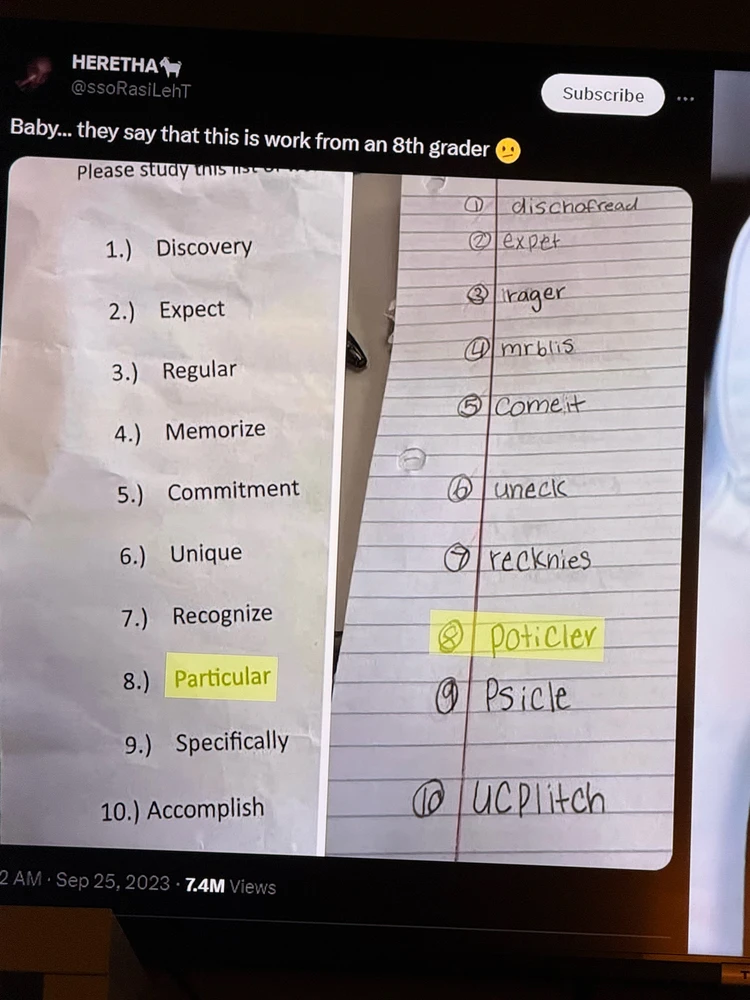 HERETHA🐐
@ssoRasiLehT
Subscribe
...
Baby... they say that this is work from an 8th grader 🫤
Please study this list of
1.) Discovery
2.) Expect
3.) Regular
4.) Memorize
5.) Commitment
6.) Unique
7.) Recognize
8.) Particular
9.) Specifically
10.) Accomplish
① dischofread
② expet
③ rager
④ mrblis
⑤ comeit
⑥ uneck
⑦ recknies
⑧ poticler
⑨ Psicle
⑩ UCPlitch
2 AM · Sep 25, 2023 · 7.4M Views